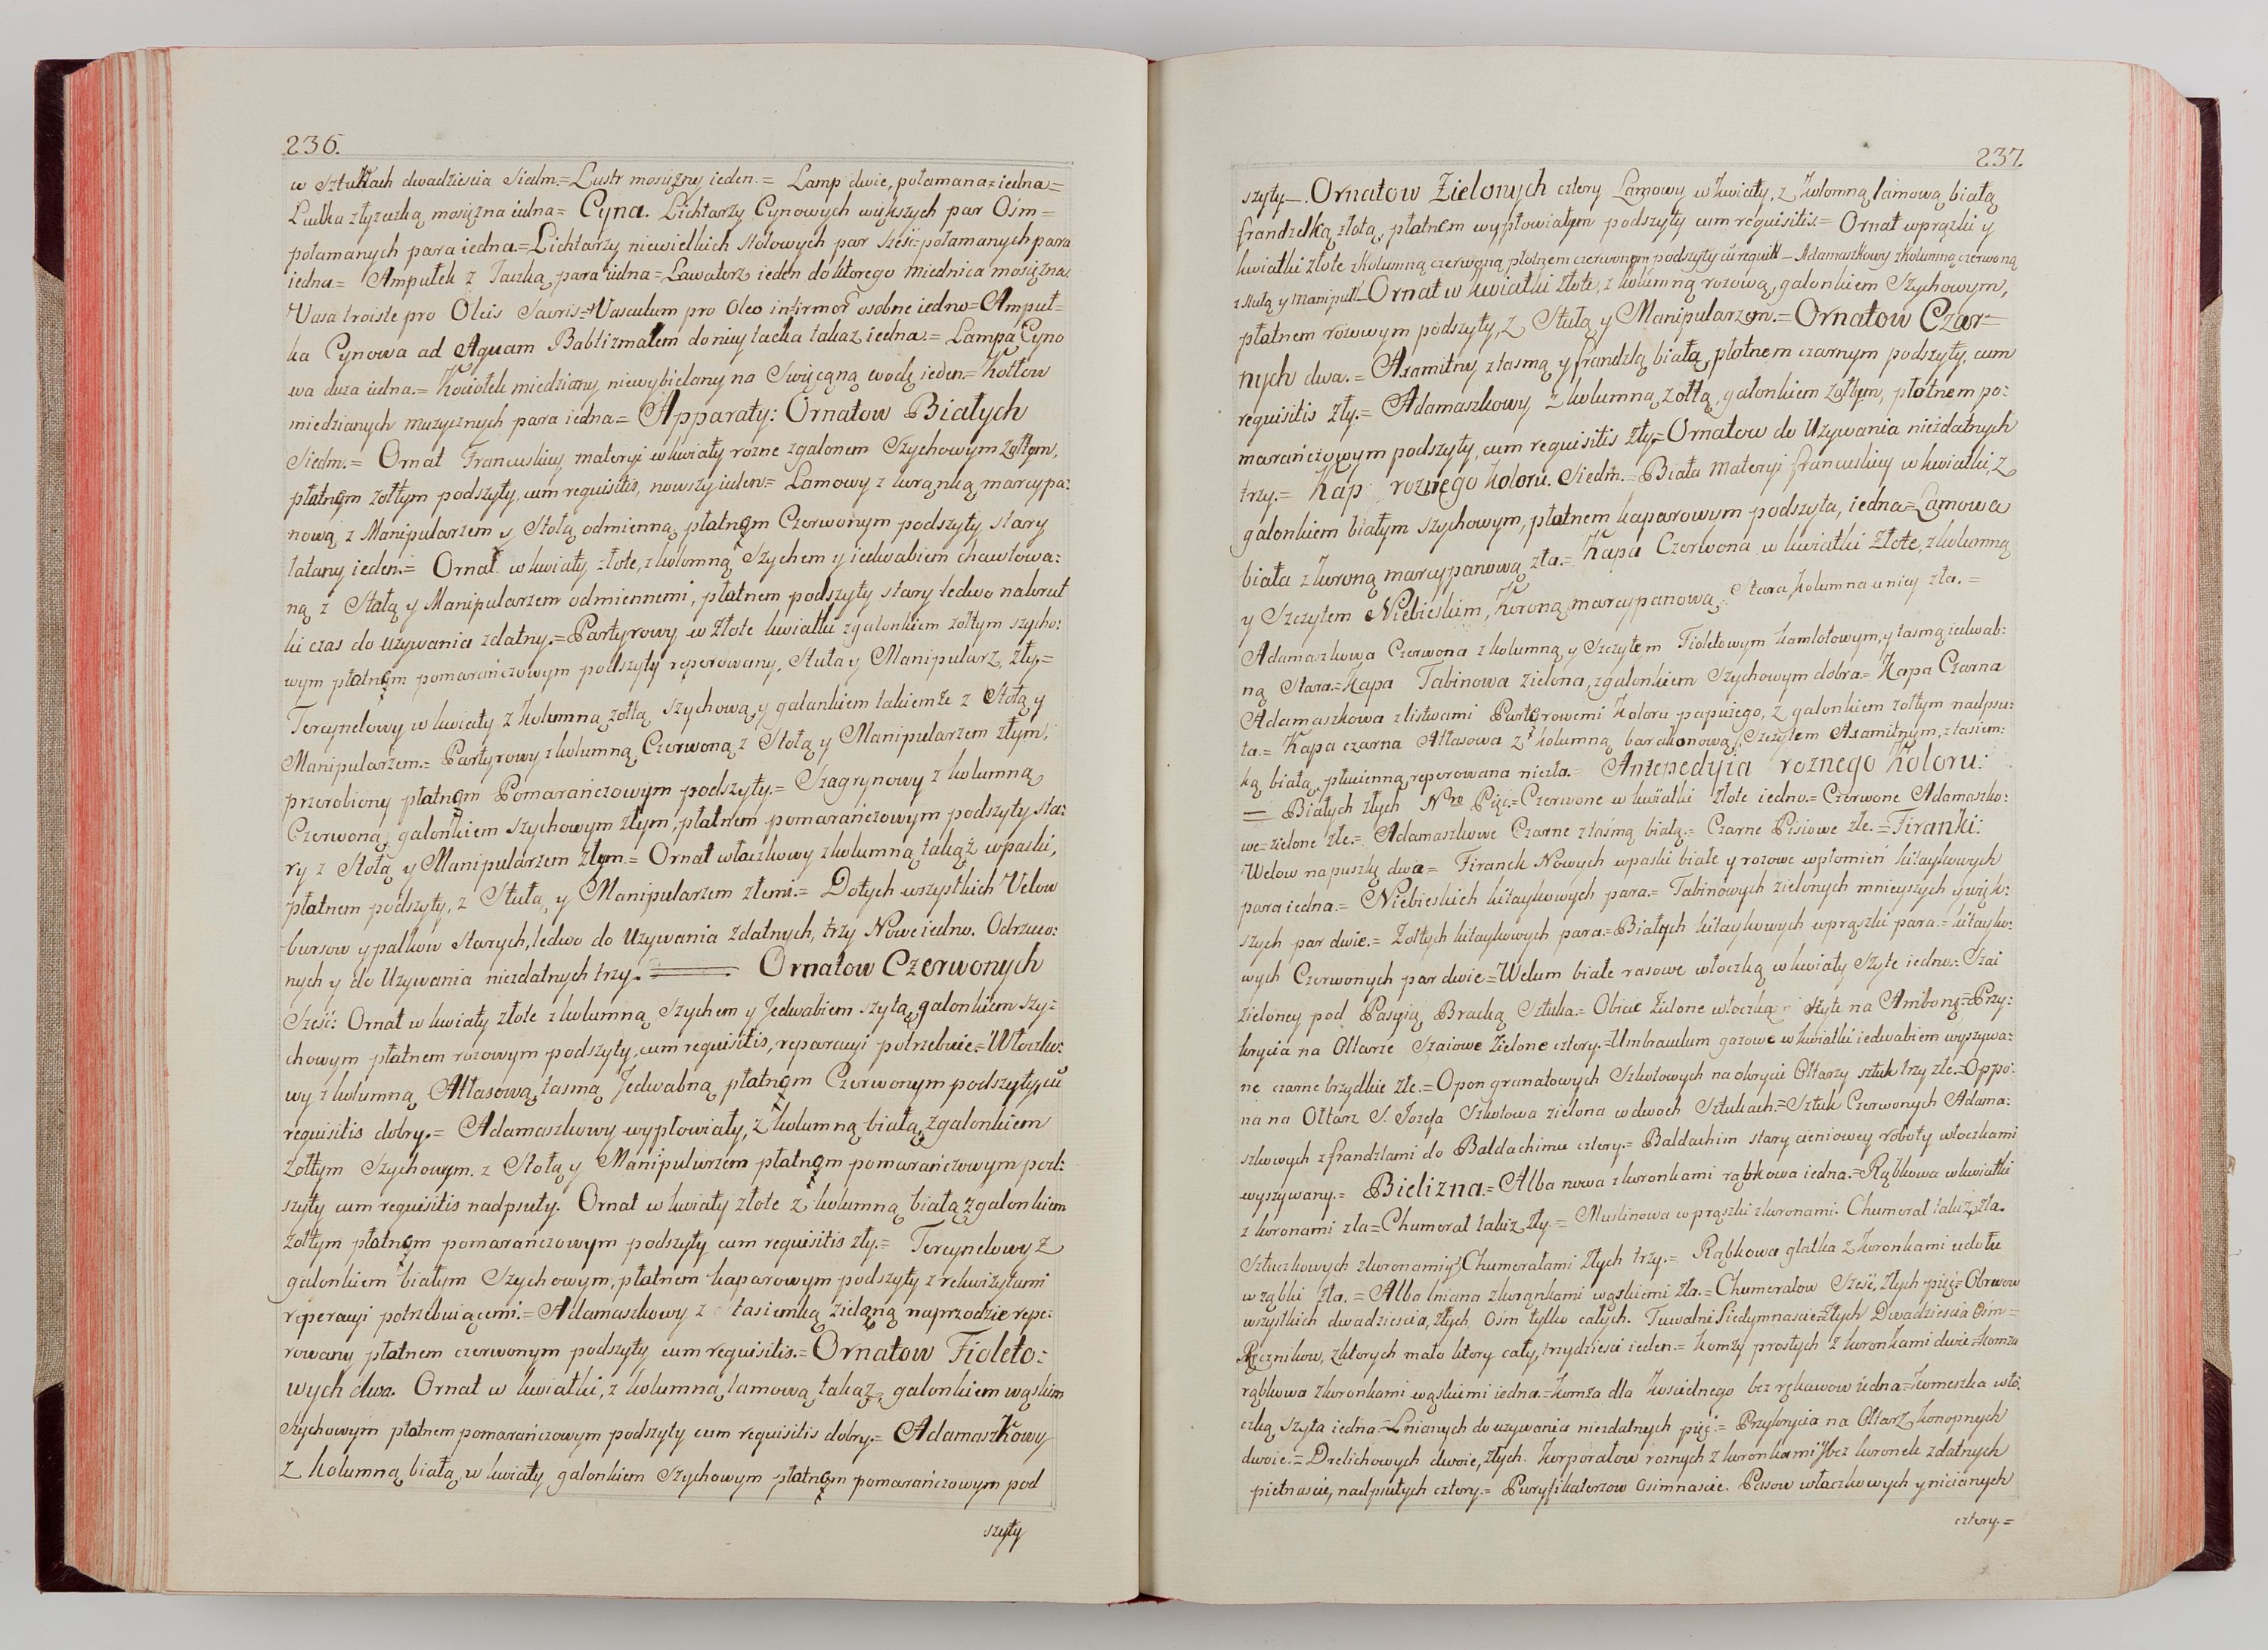 236.
w sztukach dwadziescia Siedm.= Lustr mosiężny ieden.= Lamp dwie, połamana= iedna=
Ludka złyzeczką mosiężna iedna= Cyna. Lichtarzy Cynowych większych par Ośm=
połamanych para iedna.= Lichtarzy niewielkich stołowych par sześć= połamanych para
iedna.= Ampułek z Taczką para iedna= Lawaterz ieden do ktorego miednica mosiężna
Vasa troiste pro Oleis Sacris= Vasculum pro Oleo infirmor osobne iedno= Ampuł=
ka Cynowa ad Aquam Babtizmalem do niey tacka takaz iedna.= Lampa Cyno
wa duza iedna.= Kociołek miedziany, niewybielany na Swięcąną wodę ieden.= Kotłow
miedzianych muzycznych para iedna= Apparaty: Ornatow Białych
Siedm.= Ornat Francuskiey materyi w kwiaty rożne z galonem Szychowym żołtym,
płatnem żołtym podszyty, cum requisitis, nowszy ieden.= Lamowy z koronką marcypa:
nową, z Manipularzem y Stołą odmienną, płatnem Czerwonym podszyty, stary
łatany ieden.= Ornat w kwiaty złote, z kolomną Szychem y iedwabiem chawtowa:
ną z Stułą y Manipularzem odmiennemi, płatnem podszyty stary ledwo nakrut
ki czas do uzywania zdatny.= Partyrowy w złote kwiatki z galonkiem żołtym szycho:
wym płatnem pomarańczowym podszyty reperowany, Stuła y Manipularz, zły.=
Tercynelowy w kwiaty z kolumną żołtą szychową, y galankiem takiemże z Stołą y
Manipularzem.= Partyrowy z kolumną Czerwoną z Stołą y Manipularzem złym,
przerobiony płatnem Pomarańczowym podszyty.= Szagrynowy z kolumną
Czerwoną, galonkiem szychowym złym, płatnem pomarańczowym podszyty sta:
ry z Stołą y Manipularzem złym.= Ornat włoczkowy z kolumną takąż w paski,
płatnem podszyty, z Stuła, y Manipularzem złemi.= Dotych wszystkich Velow
bursow y palkow starych, ledwo do Uzywania zdatnych, trzy Nowe iedno. Odrzuco:
nych y do Uzywania niezdatnych trzy. = Ornatow Czerwonych
Sześć: Ornat w kwiaty złote z kolumną Szychem y Jedwabiem szytą, galonkiem szy:
chowym płatnem rozowym podszyty, cum requisitis, reparacyi potrzebuie.= Włoczko:
wy z kolumną Attasową, tasmą Jedwabną, płatnem Czerwonym podszyty, cu
requisitis dobry.= Adamaszkowy wypłowiały, z kolumną białą, z galonkiem
żołtym Szychowym. z Stołą y Manipularzem płatnem pomarańczowym pod:
szyty cum requisitis nadpsuty. Ornat w kwiaty złote z kolumną białą z galonkiem
żołtym płatnem pomarańczowym podszyty cum requisitis zły.= Tercynelowy z
galonkiem białym Szychowym, płatnem kaparowym podszyty z rekwizytami
reperacyi potrzebuiącemi.= Adamaszkowy z tasiemką zieloną naprzodzie repe:
rowany płatnem czerwonym podszyty, cum requisitis.= Ornatow Fioleto:
wych dwa. Ornat w kwiatki, z kolumną lamową takąż, galonkiem wąskim
Szychowym płatnem pomarańczowym podszyty cum requisitis dobry.= Adamaszkowy
z kolumną białą, w kwiaty, galonkiem Szychowym płatnem pomarańczowym pod
szyty
237.
szyty.— Ornatow Zielonych cztery Lamowy w kwiaty, z kolomną lamową białą
frandzelką złotą, płatnem wypłowiałym podszyty cum requisitis.= Ornat w prążki y
kwiatki złote z kolumną czerwoną, płotnem czerwonym podszyty cū requisit.— Adamaszkowy z kolumną czerwoną
z stułą y Manipuł.— Ornat w kwiatki złote, z kolumną rozową, galonkiem Szychowym,
płatnem rozowym podszyty, z Stułą y Manipularzem.= Ornatow Czar=
nych dwa.= Axamitny z tasmą y frandzlą białą, płatnem czarnym podszyty, cum
requisitis zły.= Adamaszkowy z kolumną żołtą, galonkiem żołtym, płatnem po:
marańczowym podszyty, cum requisitis zły.= Ornatow do Uzywania niezdatnych
trzy.= Kap roznego koloru. Siedm.= Biała Materyi francuskiey w kwiatki, z
galonkiem białym szychowym, płatnem kaparowym podszyta, iedna= Lamowa
biała z koroną marcypanową zła.= Kapa Czerwona w kwiatki złote, z kolumną
y Szczytem Niebieskim, Koroną marcypanową. Stara, kolumna u niey zła.=
Adamaszkowa Czerwona z kolumną y Szczytem Fioletowym kamlotowym, y tasmą iedwab:
ną Stara.= Kapa Tabinowa zielona, z galonkiem Szychowym dobra.= Kapa Czarna
Adamaszkowa z listwami Parterowemi koloru papużego, z galonkiem żołtym nadpsu:
ta.= Kapa czarna Attasowa z kolumną barakonową, Szczytem Axamitnym, z tasiem:
ką białą, płucienną, reperowana niezła.= Antepedyia roznego koloru:
= Białych złych Nro Pięć.= Czerwone w kwiatki złote iedno.= Czerwone Adamaszko:
we= zielone złe.= Adamaszkowe Czarne z taśmą białą.= Czarne Pisiowe złe.= Firanki:
Welow na puszkę dwa= Firanek Nowych w paski białe y rozowe w płomień kitaykowych
para iedna.= Niebieskich kitaykowych para.= Tabinowych zielonych mnieyszych y więk:
szych par dwie.= Żołtych kitaykowych para.= Białych kitaykowych w prąszki para.= kitayko:
wych Czerwonych par dwie= Welum białe rasowe włoczką w kwiaty szyte iedno.= Szai
zieloney pod Pasyią Bracką Sztuka.= Obicie Zielone włoczką szyte na Ambonę.= Przy:
krycia na Ołtarze Szaiowe Zielone cztery.= Umbraculum gazowe w kwiatki iedwabiem wyszywa:
ne czarne brzydkie złe.= Opon granatowych Szkotowych na okrycie Ołtarzy sztuk trzy złe.= Oppo:
na na Ołtarz S. Jozefa Szkotowa zielona w dwoch Sztukach.= Sztuk Czerwonych Adama:
szkowych z frandzlami do Baldachimu cztery.= Baldachim stary cieniowey roboty włoczkami
wyszywany.= Bielizna.= Alba nowa z koronkami rąbkowa iedna.= Rąbkowa w kwiatki
z koronami zła= Chumerał takiz zły.= Muslinowa w prąszki z koronami. Chumerał takiz, zła.
Sztuczkowych z koronami y Chumerałami złych trzy.= Rąbkowa głatka z koronkami u dołu
w ząbki zła.= Alba lniana z korąnkami wąskiemi zła.= Chumerałow Sześć, złych pięć= Obrusow
wszystkich dwadziescia, złych, ośm tylko całych. Tuwalni Siedymnascie= złych Dwadziescia Ośm=
Ręcznikow, z ktorych mało ktory cały, trzydziesci ieden.= komży prostych z koronkami dwie= komża
rąbkowa z koronkami wąskiemi iedna.= komża dla koscielnego bez rękawow iedna= komeszka wło:
czką szyta iedna= Lnianych do uzywania niezdatnych pięć.= Przykrycia na Ołtarz konopnych
dwoie.= Drelichowych dwoie, złych. Korporałow roznych z koronkami y bez koronek zdatnych
piętnaście, nadpsutych cztery.= Puryfikaterzow osimnascie. Pasow włoczkowych y nicianych
cztery.=